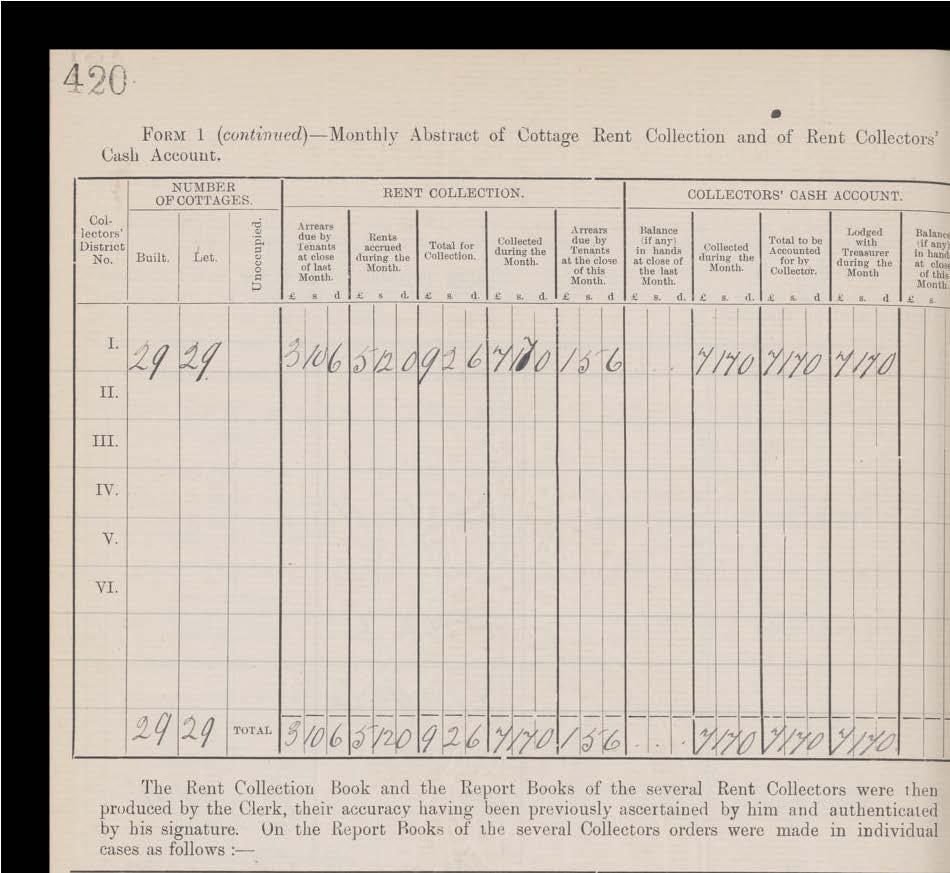 420
FORM 1 (continued)—Monthly Abstract of Cottage Rent Collection and of Rent Collectors'
Cash Account.
Collectors' District No. | NUMBER OF COTTAGES. | RENT COLLECTION. | COLLECTORS' CASH ACCOUNT.
Built. | Let. | Unoccupied. | Arrears due by Tenants at close of last Month. | Rents accrued during the Month. | Total for Collection. | Collected during the Month. | Arrears due by Tenants at the close of this Month. | Balance (if any) in hands at close of the last Month. | Collected during the Month. | Total to be Accounted for by Collector. | Lodged with Treasurer during the Month | Balance (if any) in hand at close of this Month.
£ s d | £ s d. | £ s. d. | £ s. d. | £ s. d | £ s. d. | £ s. d. | £ s. d | £ s. d | £ s.
I. | 29 | 29 | | 3 10 6 | 5 12 0 | 9 2 6 | 7 17 0 | 1 5 6 | . | 7 17 0 | 7 17 0 | 7 17 0
II.
III.
IV.
V.
VI.
29 | 29 | TOTAL | 3 10 6 | 5 12 0 | 9 2 6 | 7 17 0 | 1 5 6 | . . . | 7 17 0 | 7 17 0 | 7 17 0
The Rent Collection Book and the Report Books of the several Rent Collectors were then
produced by the Clerk, their accuracy having been previously ascertained by him and authenticated
by his signature. On the Report Books of the several Collectors orders were made in individual
cases as follows :—